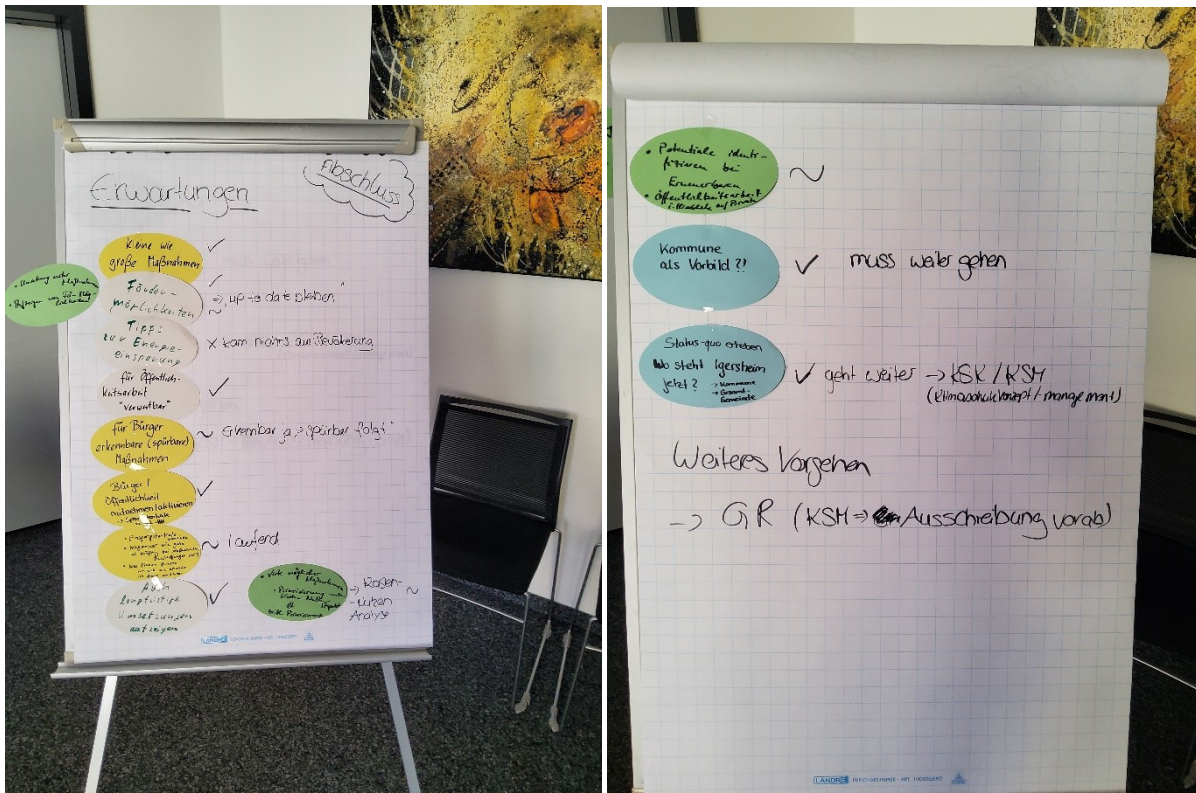 Erwartungen
Abschluss
Kleine wie
große Maßnahmen
✓
Förder-
möglichkeiten
✓
~
=> „up to date bleiben"
Tipps
zur Energie-
einsparung
x kam nichts aus Bevölkerung
für Öffentlich-
keitsarbeit
"verwertbar"
✓
für Bürger
erkennbare (spürbare)
Maßnahmen
~ Erkennbar ja,
"spürbar folgt"
Bürger /
Öffentlichkeit
mitnehmen/aktivieren
✓
~ laufend
Auch
langfristige
Umsetzungen
aufzeigen
✓
• Liste möglicher
Maßnahmen
• Priorisierung
-> Kosten-
-Nutzen
Analyse
~
LANDRÉ
• Potentiale identi-
fizieren bei
Erneuerbaren
• Öffentlichkeitsarbeit
~
Kommune
als Vorbild ?!
✓ muss weiter gehen
Status-quo erheben
Wo steht Igersheim
jetzt?
-> Kommune
-> Gesamt-
Gemeinde
✓ geht weiter -> KSK / KSM
(Klimaschutzkonzept / management)
Weiteres Vorgehen
-> GR (KSM => Ausschreibung vorab)
LANDRÉ